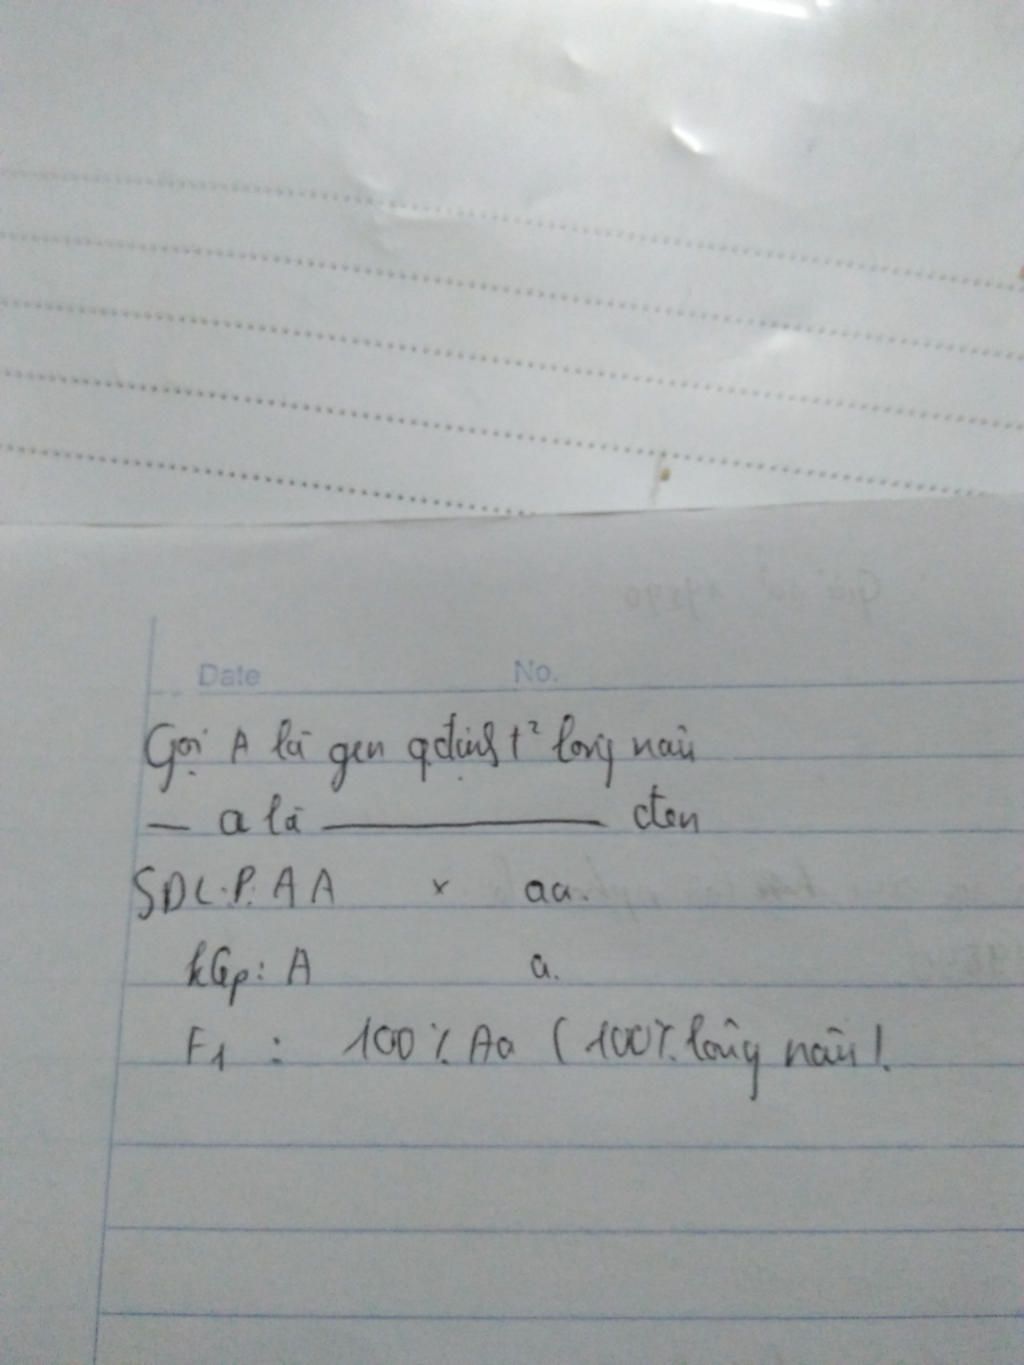 Date No.
Gọi A là gen qđịnh t² lông nâu
— a là ——— đen
SĐL.P: AA × aa.
kGp: A a.
F1 : 100% Aa (100% lông nâu).